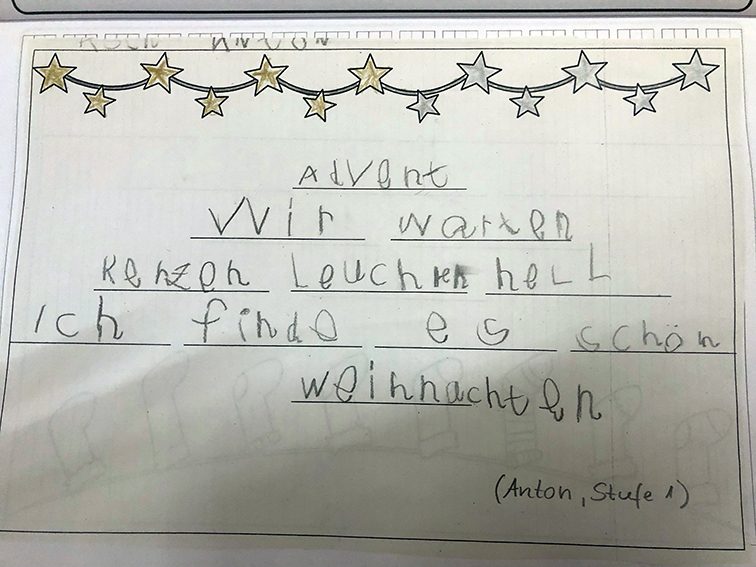 Advent
Wir warten
Kerzen Leuchten heLL
Ich finde es schön
weihnachten
(Anton, Stufe 1)